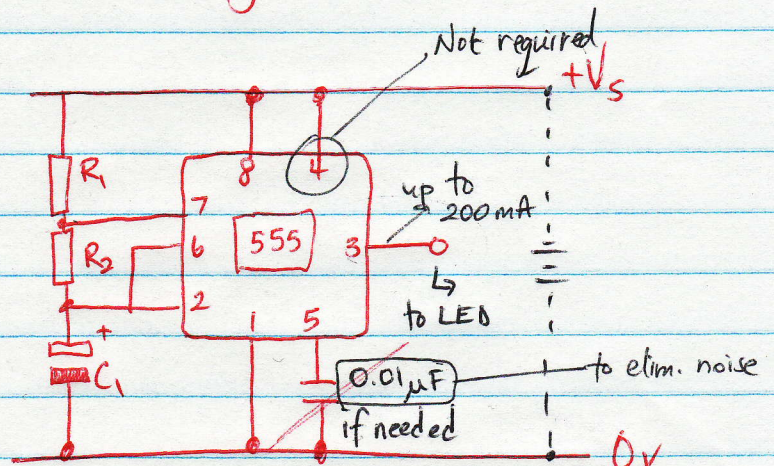 Not required
+Vs
R1
8
4
7
up to
200mA
6
555
3
R2
2
to LED
1
5
+
C1
0.01µF
to elim. noise
if needed
0v